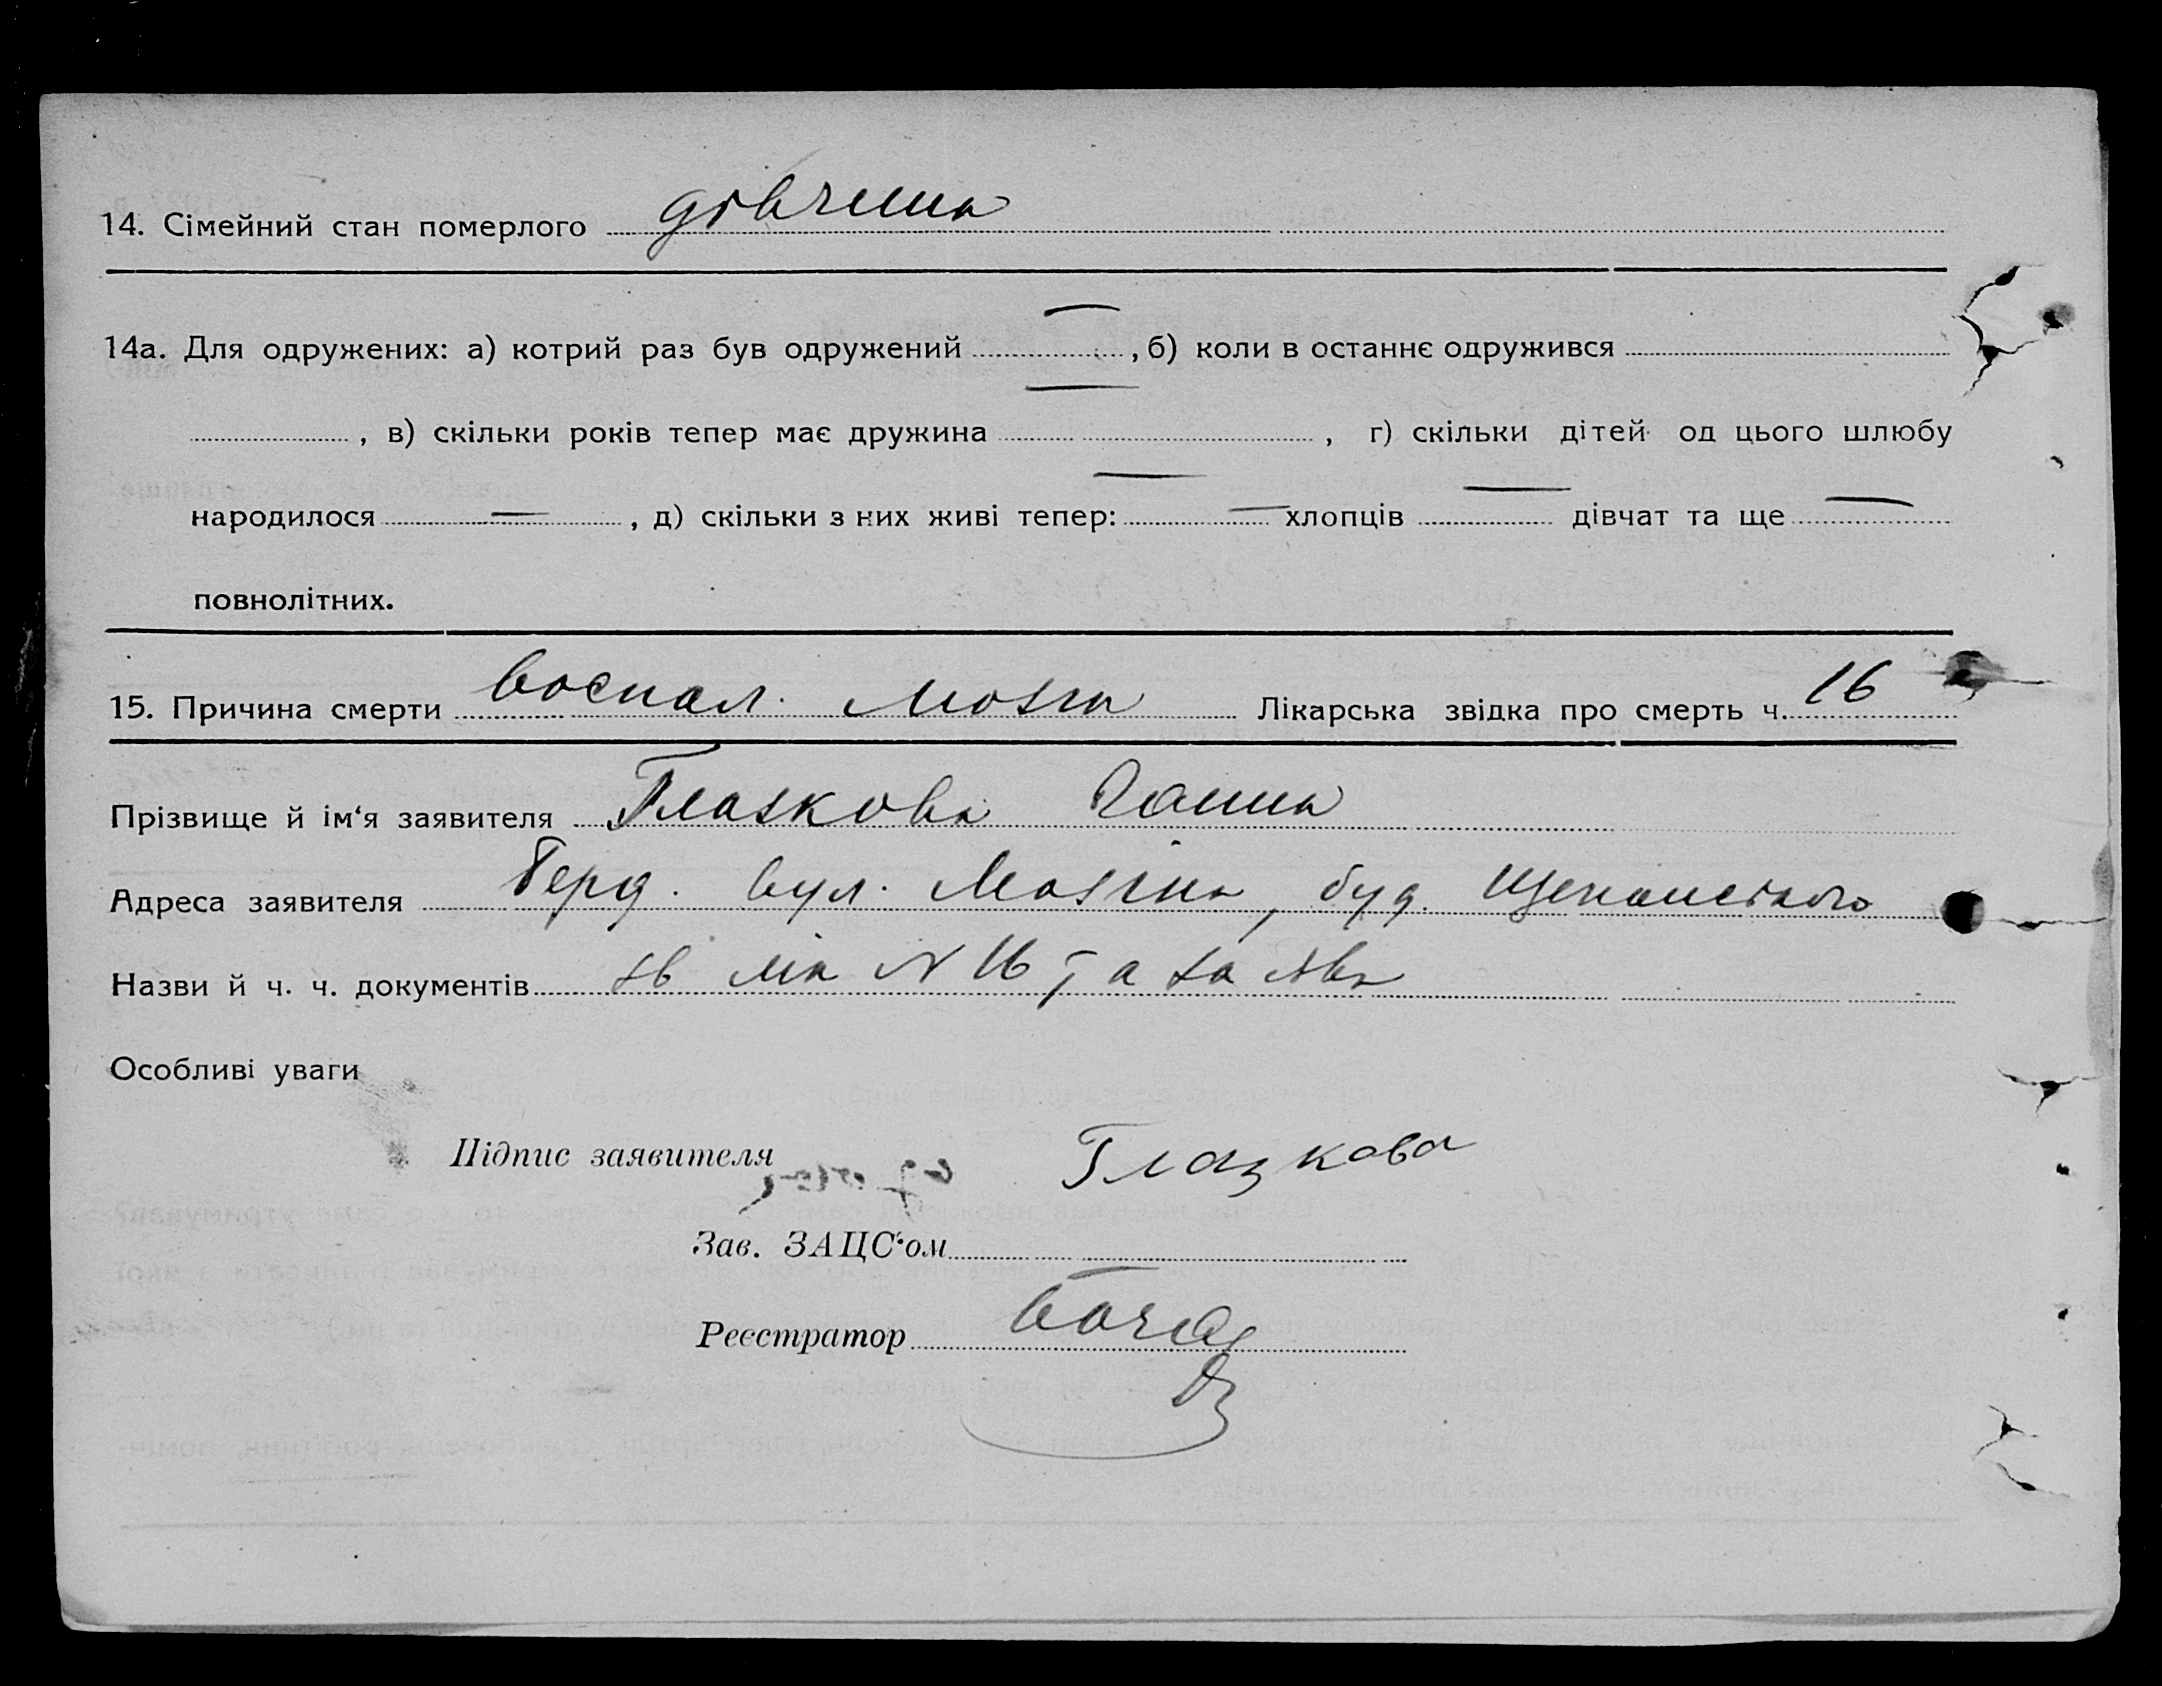 14. Сімейний стан померлого дівчина
14а. Для одружених: а) котрий раз був одружений —, б) коли в останнє одружився
, в) скільки років тепер має дружина —, г) скільки дітей од цього шлюбу
народилося —, д) скільки з них живі тепер: — хлопців — дівчат та ще —
повнолітних.
15. Причина смерти воспал. мозга Лікарська звідка про смерть ч. 16
Прізвище й ім‘я заявителя Глазкова Ганна
Адреса заявителя Берд. вул. Мазіна, буд.
Назви й ч. ч. документів зв лік N 16 та заява
Особливі уваги
Підпис заявителя Глазкова
Зав. ЗАЦС‘ом
Реєстратор